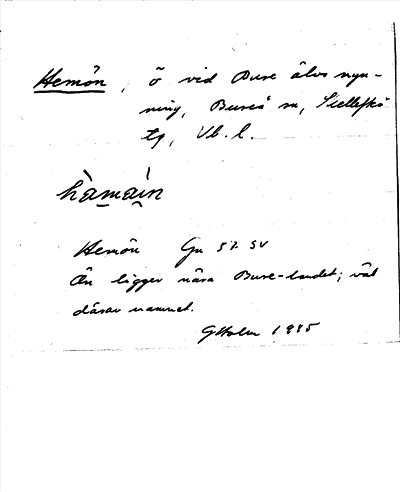 Hemön, ö vid Bure älvs myn-
ning, Bureå sn, Skellefteå
tg, Vb. l.
hàmaìn
Hemön Gk 52 SV
Ön ligger nära Bure-landet; väl
därav namnet.
GHolm 1985